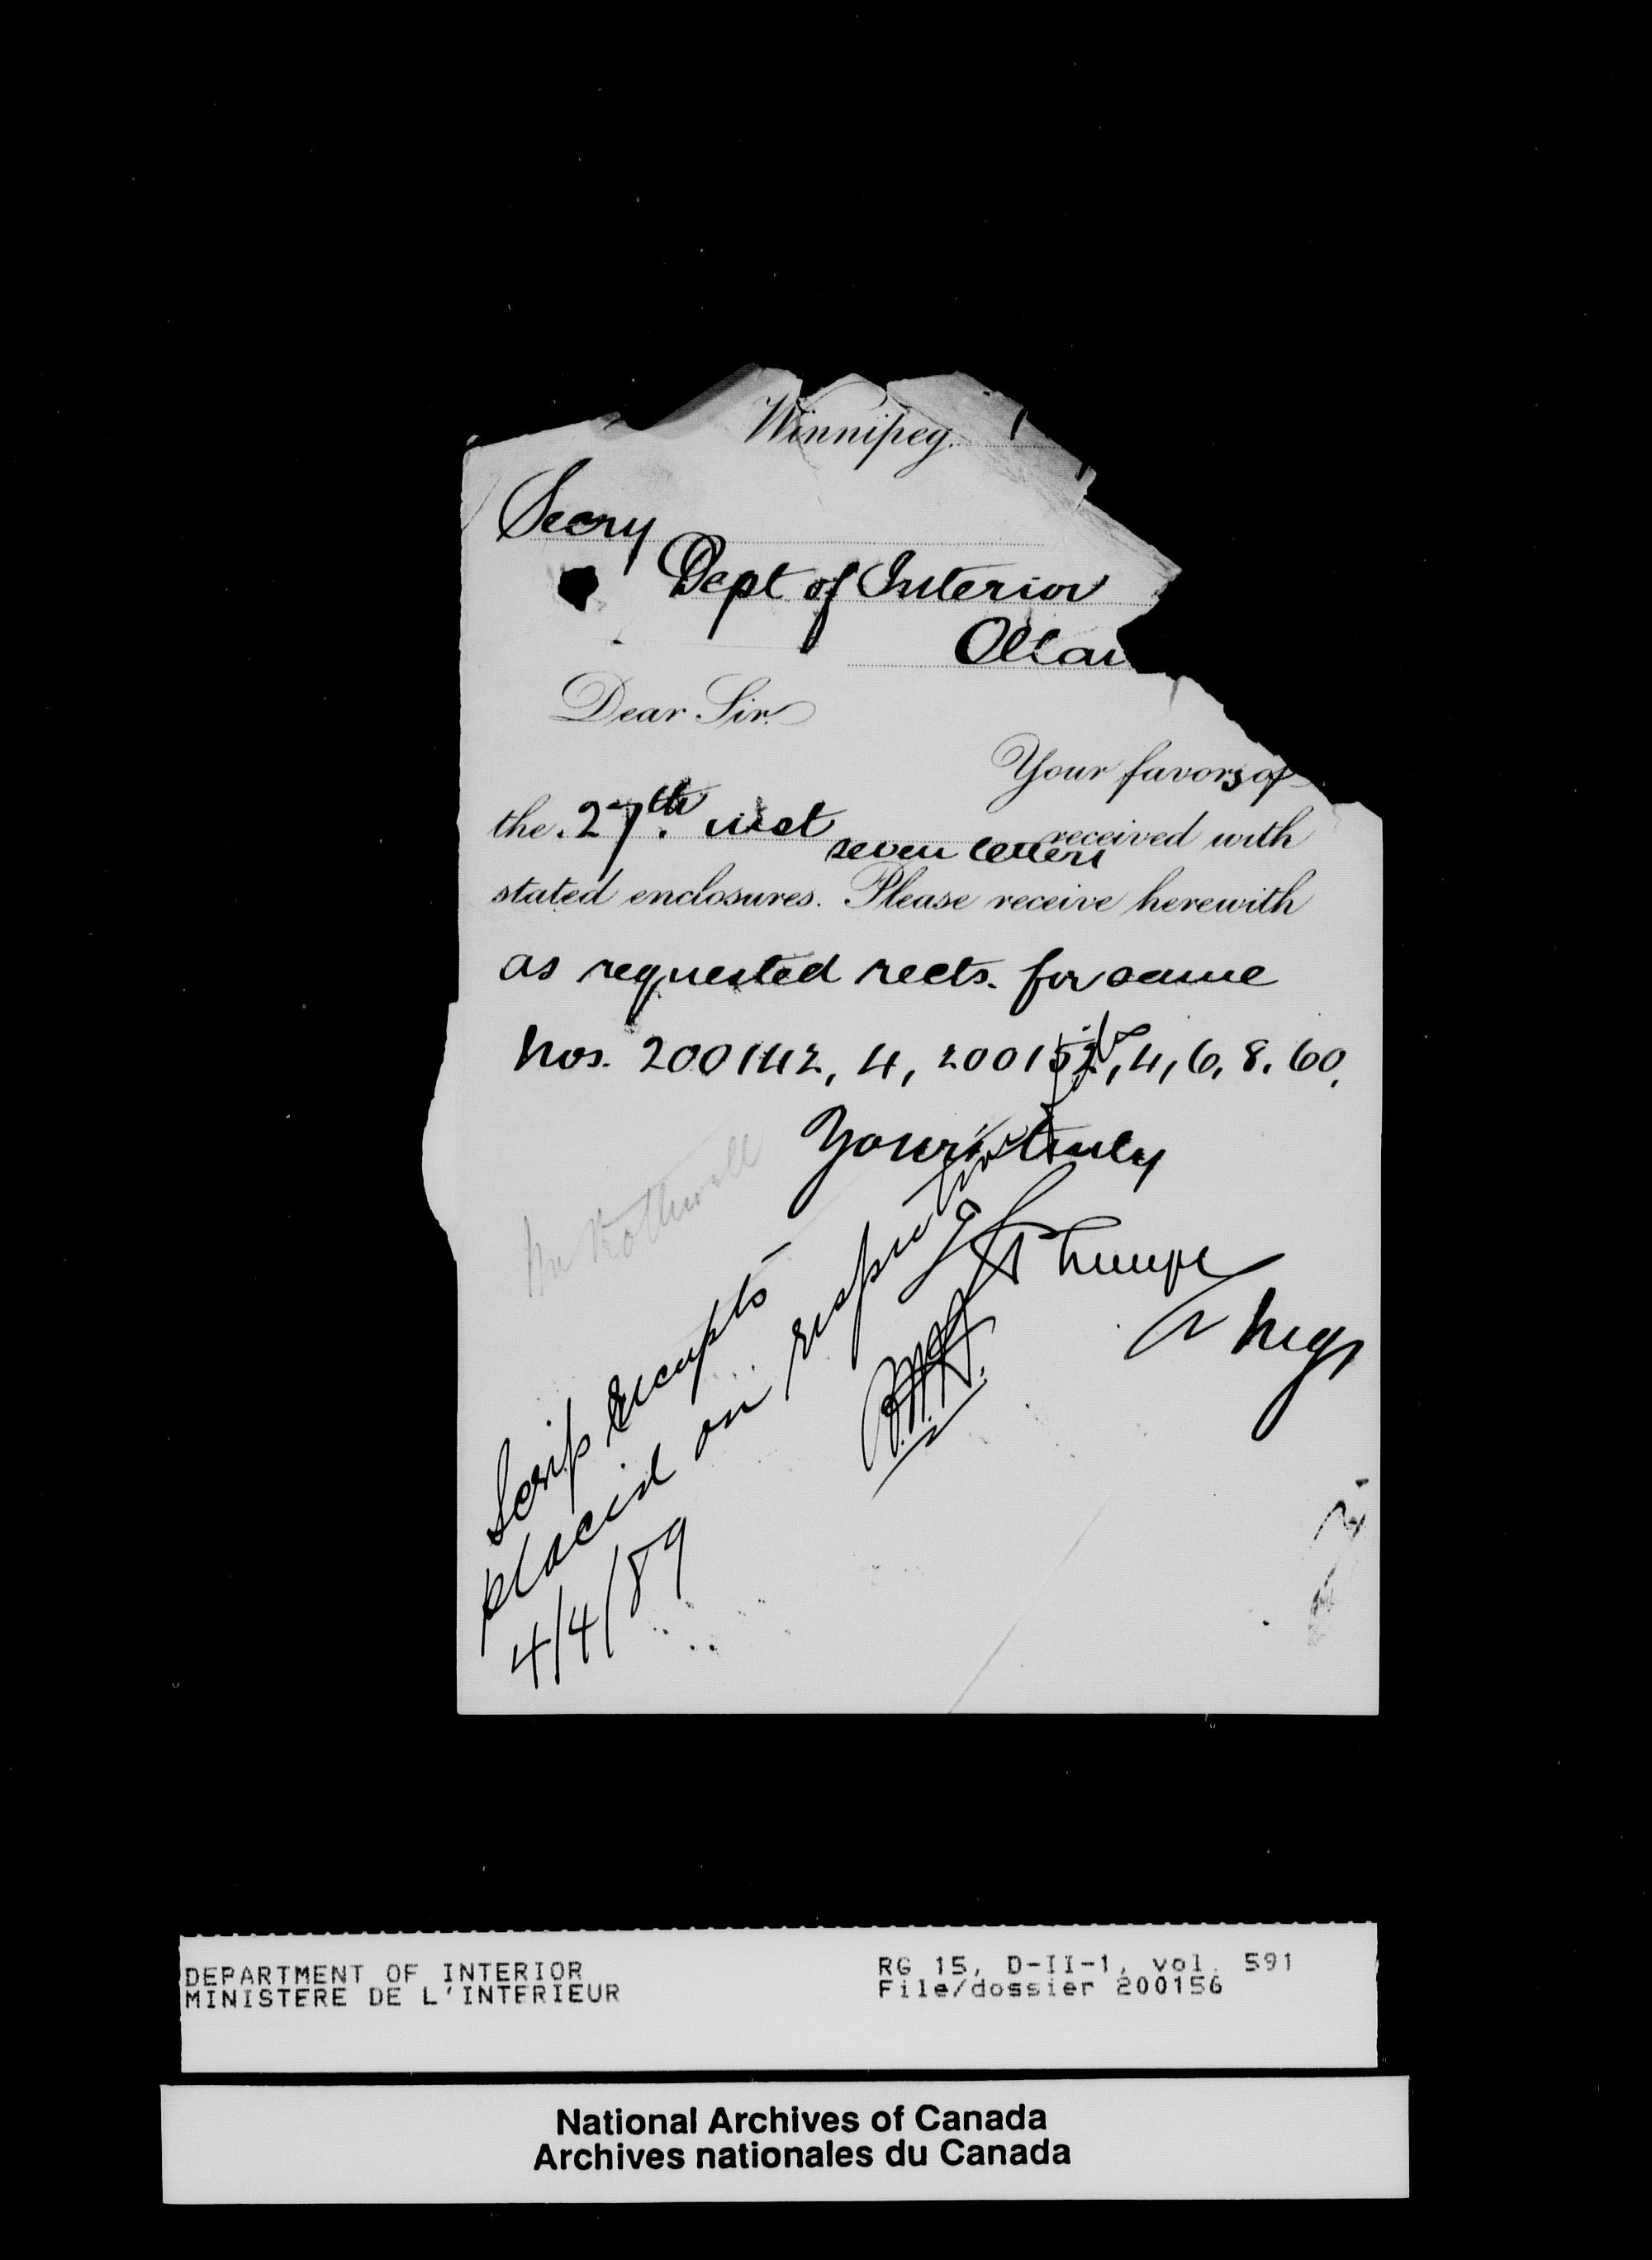 Winnipeg.
Secry
Dept of Interior
Ottaw
Dear Sir.
Your favors of
the 27th inst received with
seven letters
stated enclosures. Please receive herewith
as requested rects. for same
Nos. 200142, 4, 200152, 4, 6, 8, 60,
Yours truly
Mgr
Mr Rothwell
Scrip receipts
placed on
4/4/89
DEPARTMENT OF INTERIOR
MINISTERE DE L'INTERIEUR
RG 15, D-II-1, vol. 591
File/dossier 200156
National Archives of Canada
Archives nationales du Canada